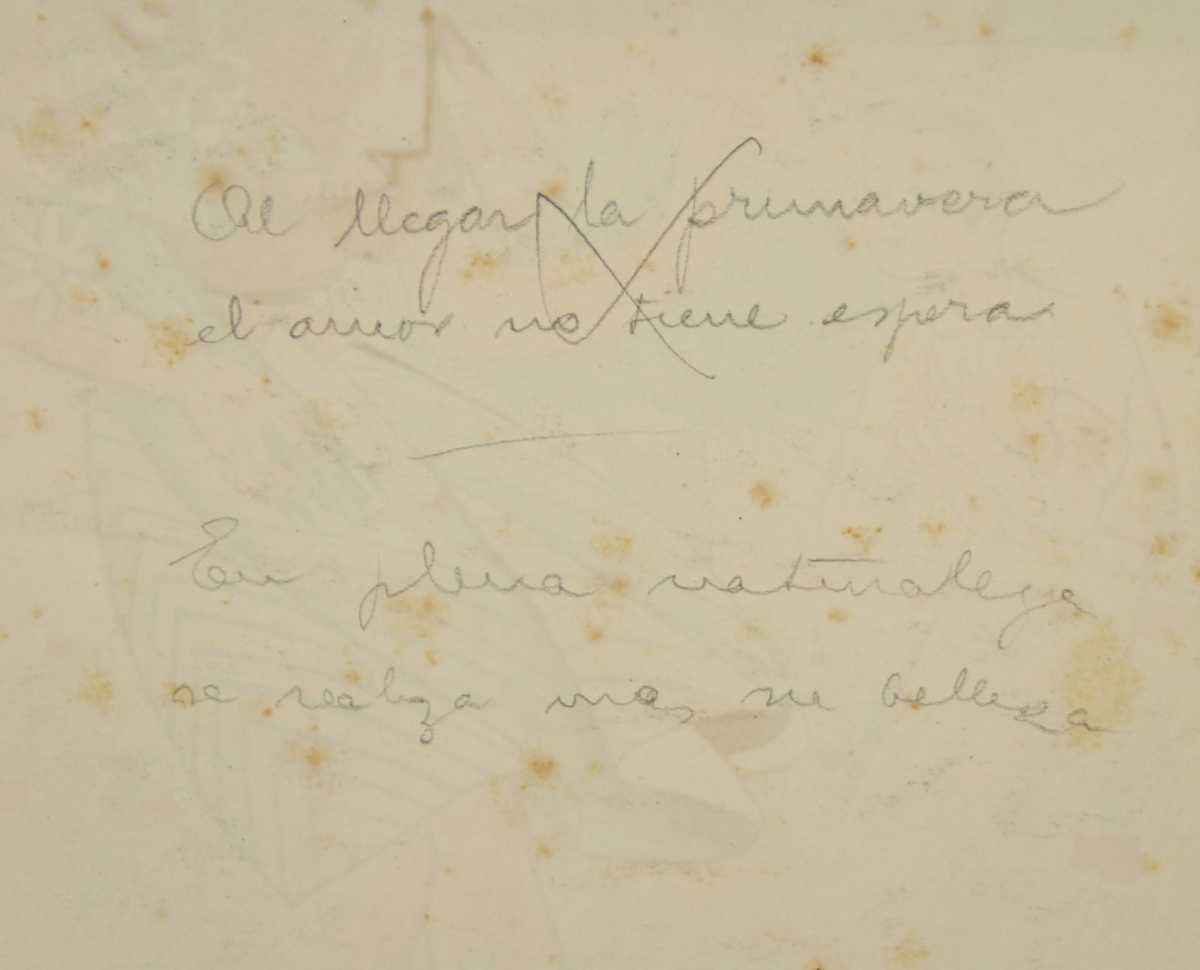 Al llegar la primavera
el amor no tiene espera
En plena naturaleza
se realiza mas su belleza